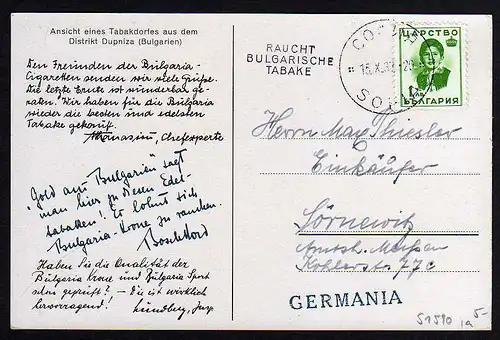 Ansicht eines Tabakdorfes aus dem
Distrikt Dupniza (Bulgarien)
Den Freunden der Bulgaria-
Cigaretten senden wir viele Grüsse.
Die letzte Ernte ist wunderbar ge-
raten. Wir haben für die Bulgaria
wieder die besten und edelsten
Tabake gekauft.
Athanasiou, Chefexperte
"Gold aus Bulgarien" sagt
man hier zu diesen Edel-
tabaken! Es lohnt sich
Bulgaria-Krone zu rauchen.
Haben Sie die Qualität der
Bulgaria Krone und Bulgaria Sport
schon geprüft? – die ist wirklich
hervorragend! Lundberg, Insp.
RAUCHT
BULGARISCHE
TABAKE
15.X.3
ЦАРСТВО
БЪЛГАРИЯ
Herrn Max Thiessler
Einkäufer
Sörnewitz
Amtsh. Meissen
Köhlerstr. 77c
GERMANIA
51510
5-